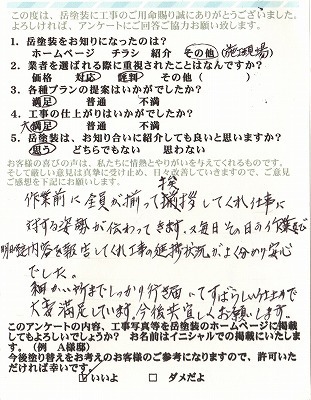 この度は、岳塗装に工事のご用命賜り誠にありがとうございました。
よろしければ、アンケートにご回答ご協力お願い致します。
1. 岳塗装をお知りになったのは？
ホームページ チラシ 紹介 その他（施工現場）
2. 業者を選ばれる際に重視されたことはなんですか？
価格 対応 評判 その他（ ）
3. 各種プランの提案はいかがでしたか？
満足 普通 不満
4. 工事の仕上がりはいかがでしたか？
大満足 普通 不満
5. 岳塗装は、お知り合いに紹介しても良いと思いますか？
思う どちらでもない 思わない
お客様の喜びの声は、私たちに情熱とやりがいを与えてくれるものです。
そして厳しい意見は真摯に受け止め、日々改善していきますので、ご意見
ご感想を下記にお願いします。
作業前に全員が揃って挨拶してくれ仕事に
対する姿勢が伝わってきます。又毎日その日の作業及び
明日の内容を報告してくれ工事の進捗状況がよく分かり安心
でした。
細かい所までしっかり行き届いてすばらしい仕上りで
大変満足しています。今後共宜しくお願いします。
このアンケートの内容、工事写真等を岳塗装のホームページに掲載
してもよろしいでしょうか？ お名前はイニシャルでの掲載にいたしま
す。（例 A様邸）
今後塗り替えをお考えのお客様のご参考になりますので、許可いた
だければ幸いです。
☑いいよ □ ダメだよ